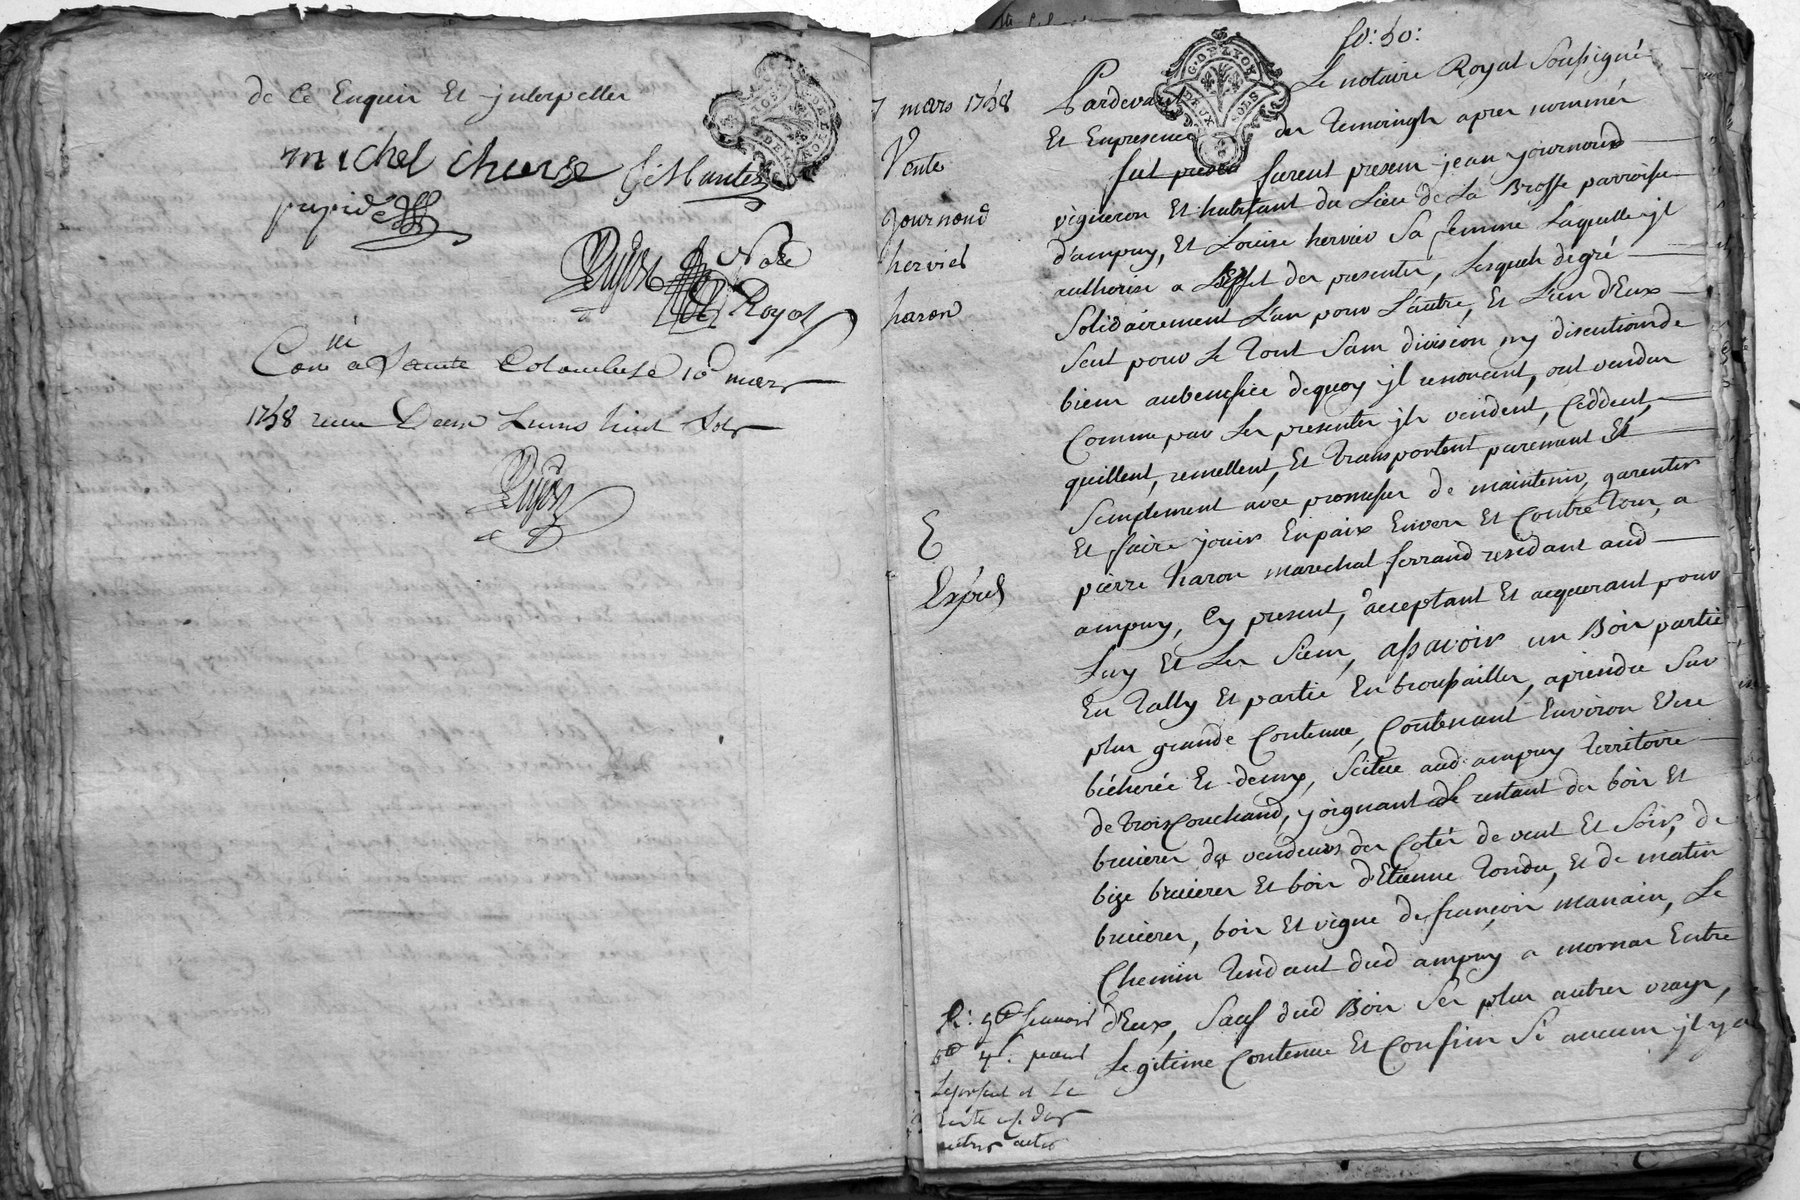 de ce Enquis Et jnterpellés
michel cheuse
Dujas Nore
Royal
Con.lé a Sainte Colombe le 10 mars
1758 receu Deux Livres huit Sols
Dujas
fo: 50:
G. DE LYON
DEUX SOLS
7 mars 1758
Vente
journoud
hervier
haron
E
Expéd
Pardevant Le notaire Royal Soussigné
Et Enpresence des Temoingts apres nommés
fut present furent presens jean journoud
vigneron Et habitant du Lieu de La Brosse parroisse
d'ampuy, Et Louise hervier Sa femme Laquelle jl
authorise a Leffet des presentes, Lesquels de gré
Solidairement L'un pour L'autre, Et L'un d'Eux
Seul pour Le Tout Sans division ny discution de
biens aubenefice dequoy jls renoncent, ont vendus
Comme par Les presentes jls vendent, Ceddent,
quittent, remettent, Et Transportent purement Et
Simplement avec promesses de maintenir, garentir
Et faire jouir Enpaix Envers Et Contre Tous, a
pierre haron marechal ferrand residant aud
ampuy, Cy present, acceptant Et acquerant pour
Luy Et Les Siens, assavoir un Bois partie
En Tally Et partie En broussailles, aprendre Sur
plus grande Contenue, Contenant Environ Une
bicherée Et demy, Scitué aud ampuy Territoire
de Trois Couchand, joignant Le restant des bois Et
bruieres des vendeurs des Cotés de vent Et Soir, de
bize bruieres Et bois d'Etienne Tondu, Et de matin
bruieres, bois Et vigne de françois manain, Le
Chemin Tendant dud ampuy a mornas Entre
d'Eux, Sauf dud Bois Ses plus autres vrays,
Legitime Contenue Et Confins Si aucuns jl y a